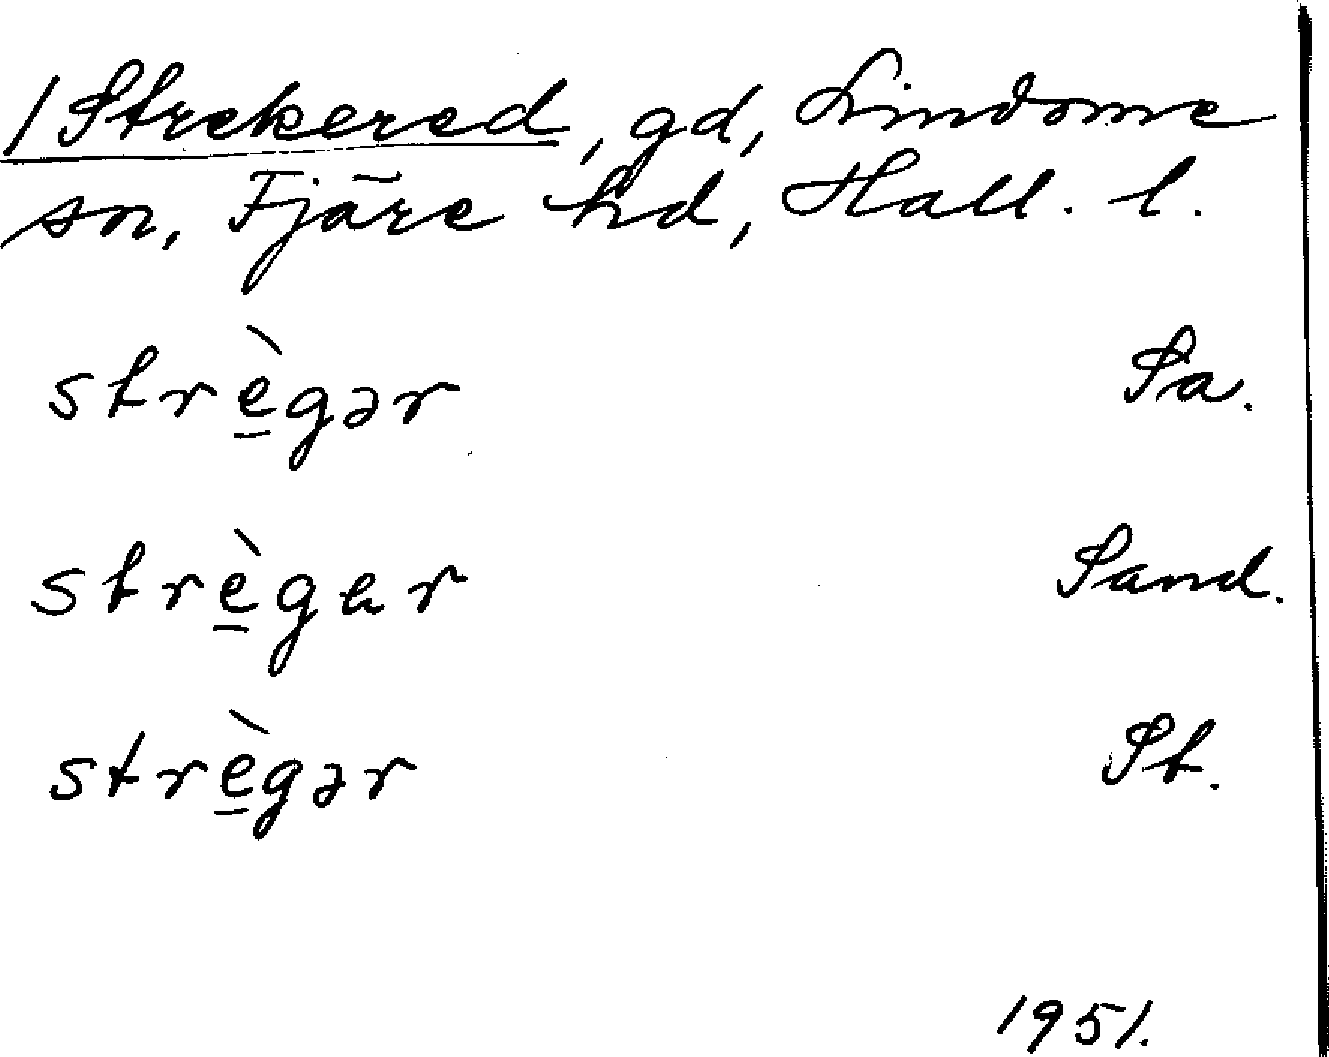 /Strekered, gd, Lindome
sn, Fjäre hd, Hall. l.
strè̱gər Sa.
strè̱gar Sand.
strè̱gər St.
1951.